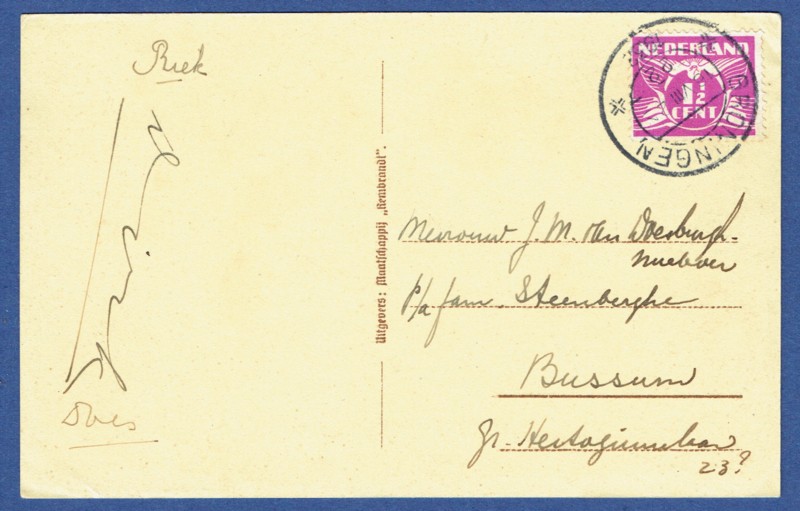 Riek
Does
Uitgevers: Maatschappij „Rembrandt".
NEDERLAND
1½
CENT
GRONINGEN
Mevrouw J. M. van Doesburgh-
p/a fam. Steenberghe
Bussum
Gr. Hertoginnelaan
23?